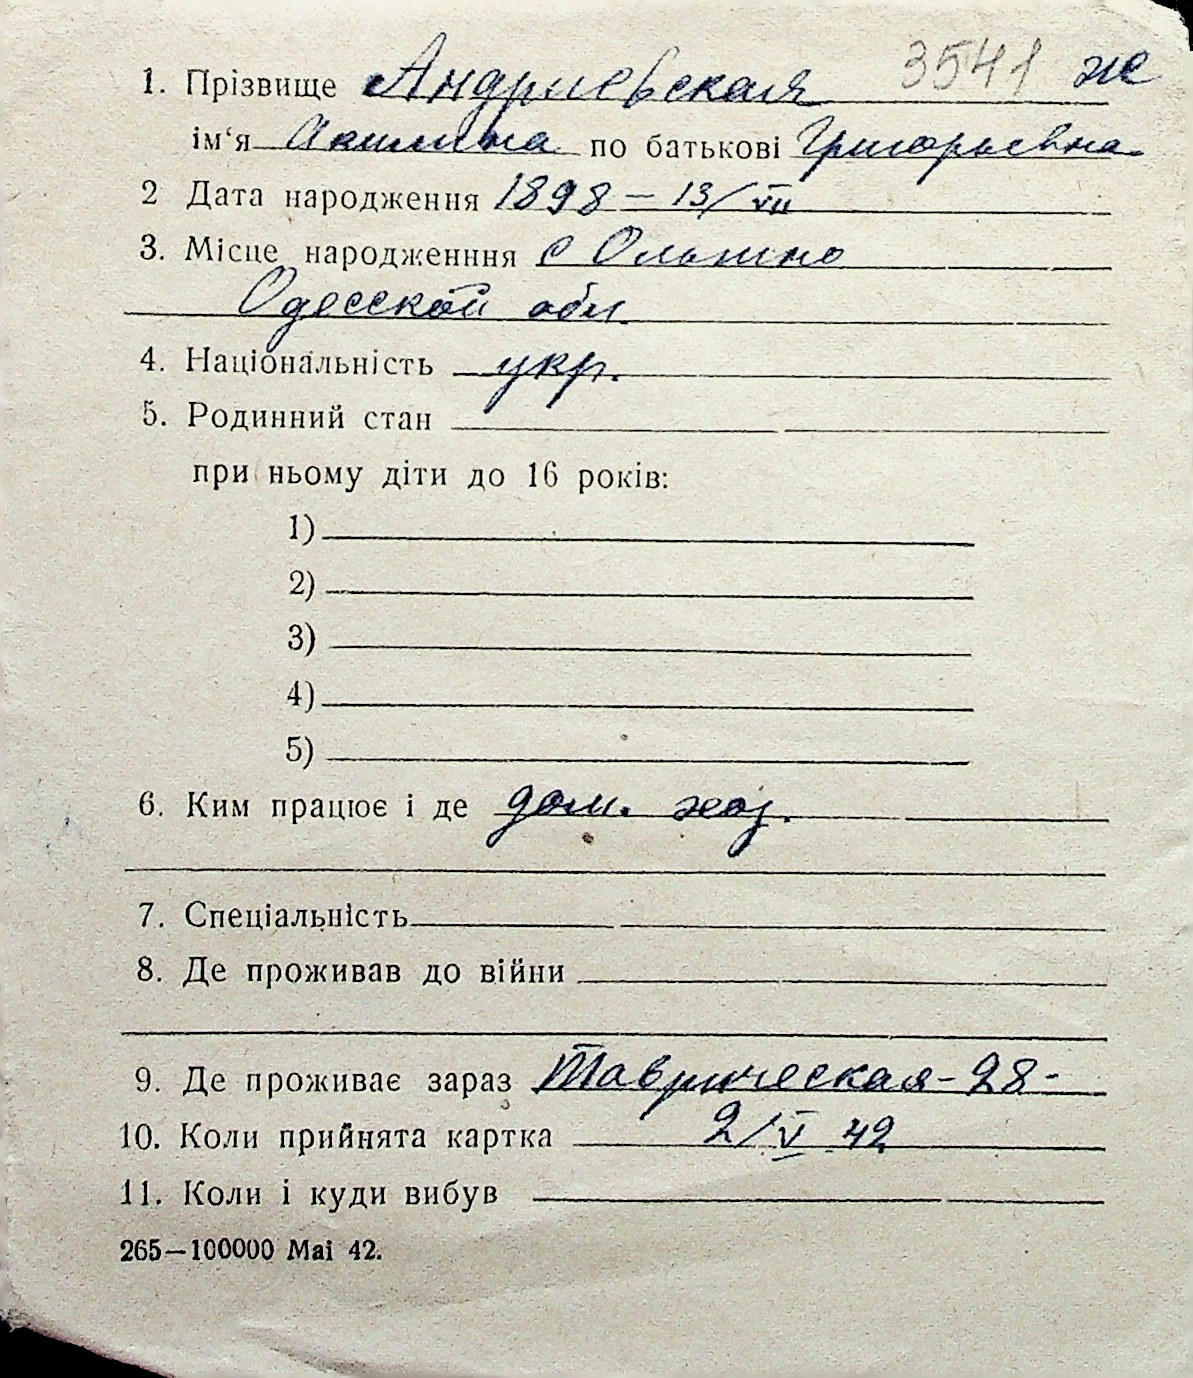 3541 ж
1. Прізвище Андриевская
ім‘я Акилина по батькові Григорьевна
2 Дата народження 1898 – 13/VII
3. Місце народженння с Ольгино
Одесской обл.
4. Національність укр.
5. Родинний стан
при ньому діти до 16 років:
1)
2)
3)
4)
5)
6. Ким працює і де дом. хоз.
7. Спеціальність
8. Де проживав до війни
9. Де проживає зараз Таврическая - 28 -
10. Коли прийнята картка 2/V 42
11. Коли і куди вибув
265—100000 Mai 42.